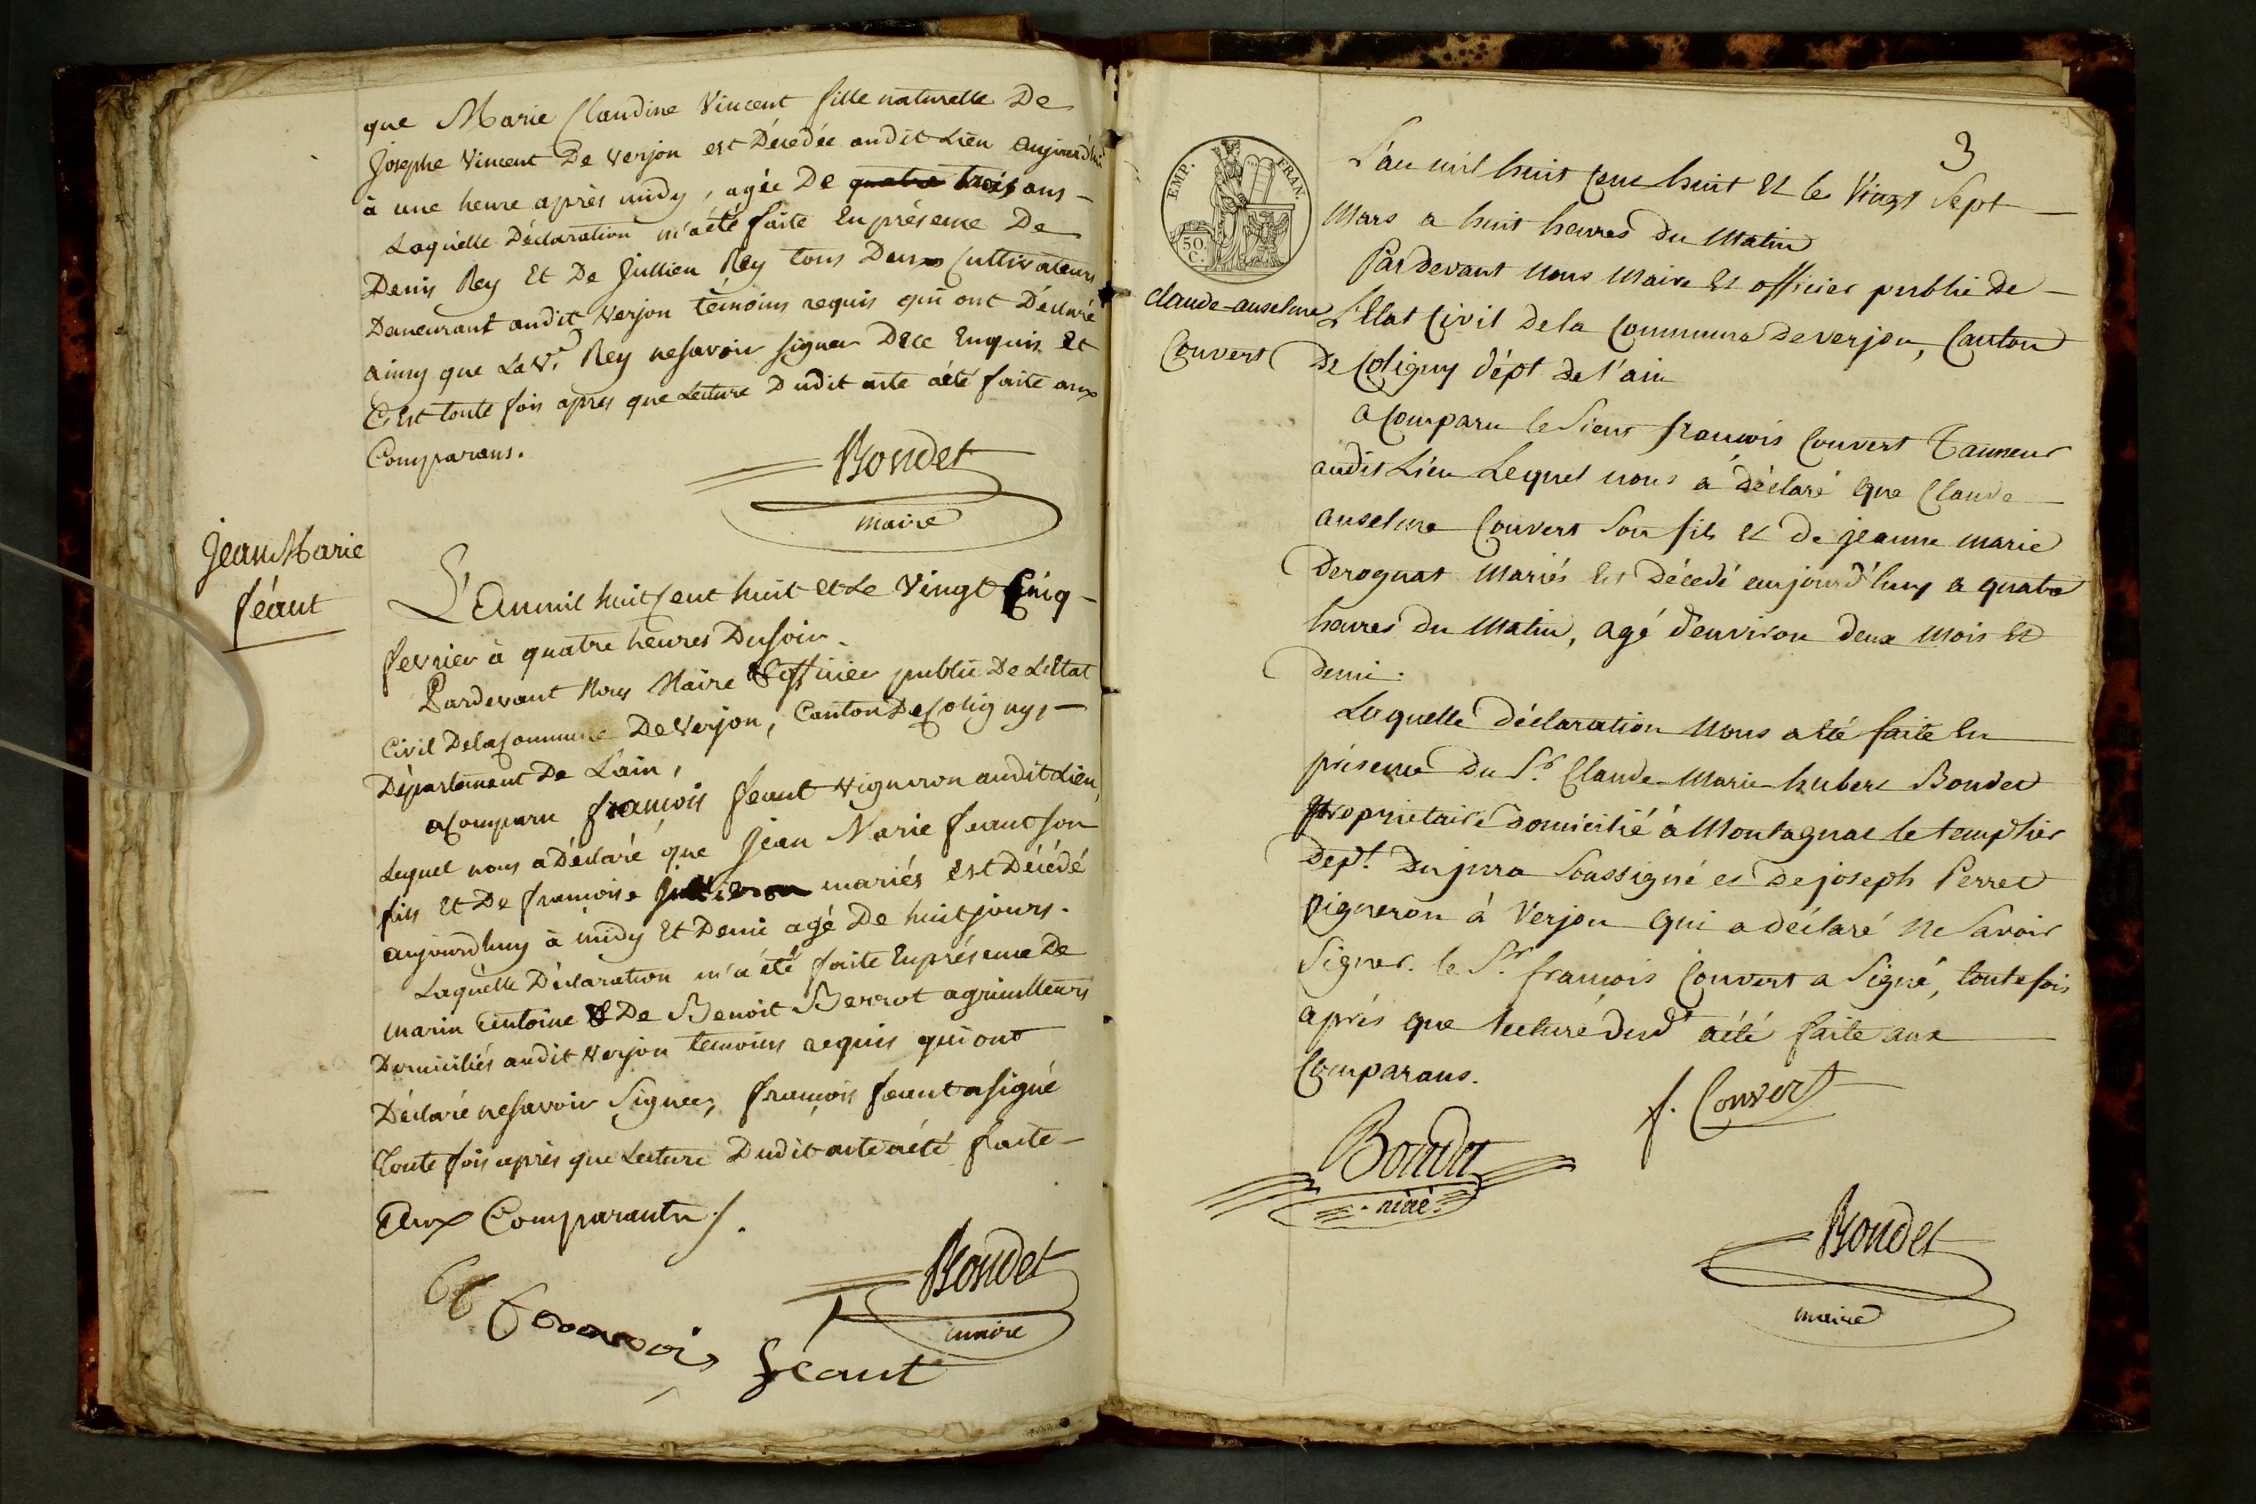 que Marie Claudine Vincent fille naturelle De
Josephe Vincent De Verjon est Décedée audit Lieu aujourd'hui
à une heure après midy, agée De quatre trois ans -
Laquelle Déclaration m'a été faite En présence De
Denis Rey Et De Jullien Rey tous Deux Cultivateurs
Demeurant audit Verjon témoins requis qui ont Déclaré
ainsy que La Ve. Rey ne savoir signer De ce Enquis Et
C'Est toute fois apres que Lecture Dudit acte a été faite aux
Comparans.
Bondet
maire
Jean Marie
féaut
L'An mil huit Cent huit et Le Vingt Cinq -
fevrier à quatre heures Du soir.
Pardevant Nous Maire & officier public De L'Etat
Civil De la Commune De Verjon, Canton De Coligny, -
Département De Lain,
a Comparu françois feaut Vigneron audit Lieu,
Lequel nous a Déclaré que Jean Marie feaut son
fils Et De francoise mariés est Décédé
aujourdhuy à midy Et Demi agé De huit jours.
Laquelle Déclaration m'a été faite En présence De
Marin Antoine & De Benoit Berrot agriculteurs
Domiciliés audit Verjon temoins requis qui ont
Déclaré ne savoir Signer, françois feaut a signé
Toute fois après que Lecture Dudit acte a été faite -
Aux Comparants.
Bondet
maire
francois féaut
3
EMP. FRAN.
50.
C.
claude-anselme
Convert
L'an mil huit Cent huit Et le Vingt Sept -
Mars a huit heures Du Matin
Par devant Nous Maire Et officier public De -
L'Etat Civil De la Commune de verjon, Canton
De Coligny dépt. de l'ain
a Comparu le Sieur françois Convert Tanneur
audit Lieu Lequel nous a déclaré que Claude -
anselme Convert Son fils Et De jeanne marie
Derognat Mariés Est Décedé aujourd'huy a quatre
heures Du Matin, agé d'environ deux Mois Et
demi.
Laquelle déclaration Nous a été faite En
présence Du Sr. Claude-Marie-hubert Bondet
propriétaire domicilié à Montagna le templier
Dept. Du jura Soussigné et De joseph Perret
vigneron à Verjon Qui a déclaré Ne Savoir
Signer. le Sr. francois Convert a Signé, toutefois
après que lecture dud.t a été faite aux
Comparans.
f. Convert
Bondet
Bondet
maire